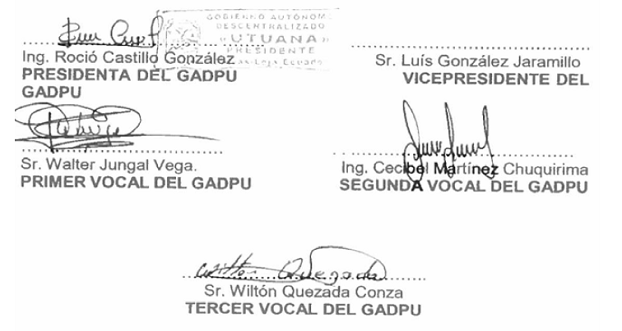 GOBIERNO AUTÓNOMO
DESCENTRALIZADO
"UTUANA"
PRESIDENTE
Loja-Ecuador
Ing. Roció Castillo González
PRESIDENTA DEL GADPU
GADPU
Sr. Luís González Jaramillo
VICEPRESIDENTE DEL
Sr. Walter Jungal Vega.
PRIMER VOCAL DEL GADPU
Ing. Cecibel Martínez Chuquirima
SEGUNDA VOCAL DEL GADPU
Sr. Wiltón Quezada Conza
TERCER VOCAL DEL GADPU